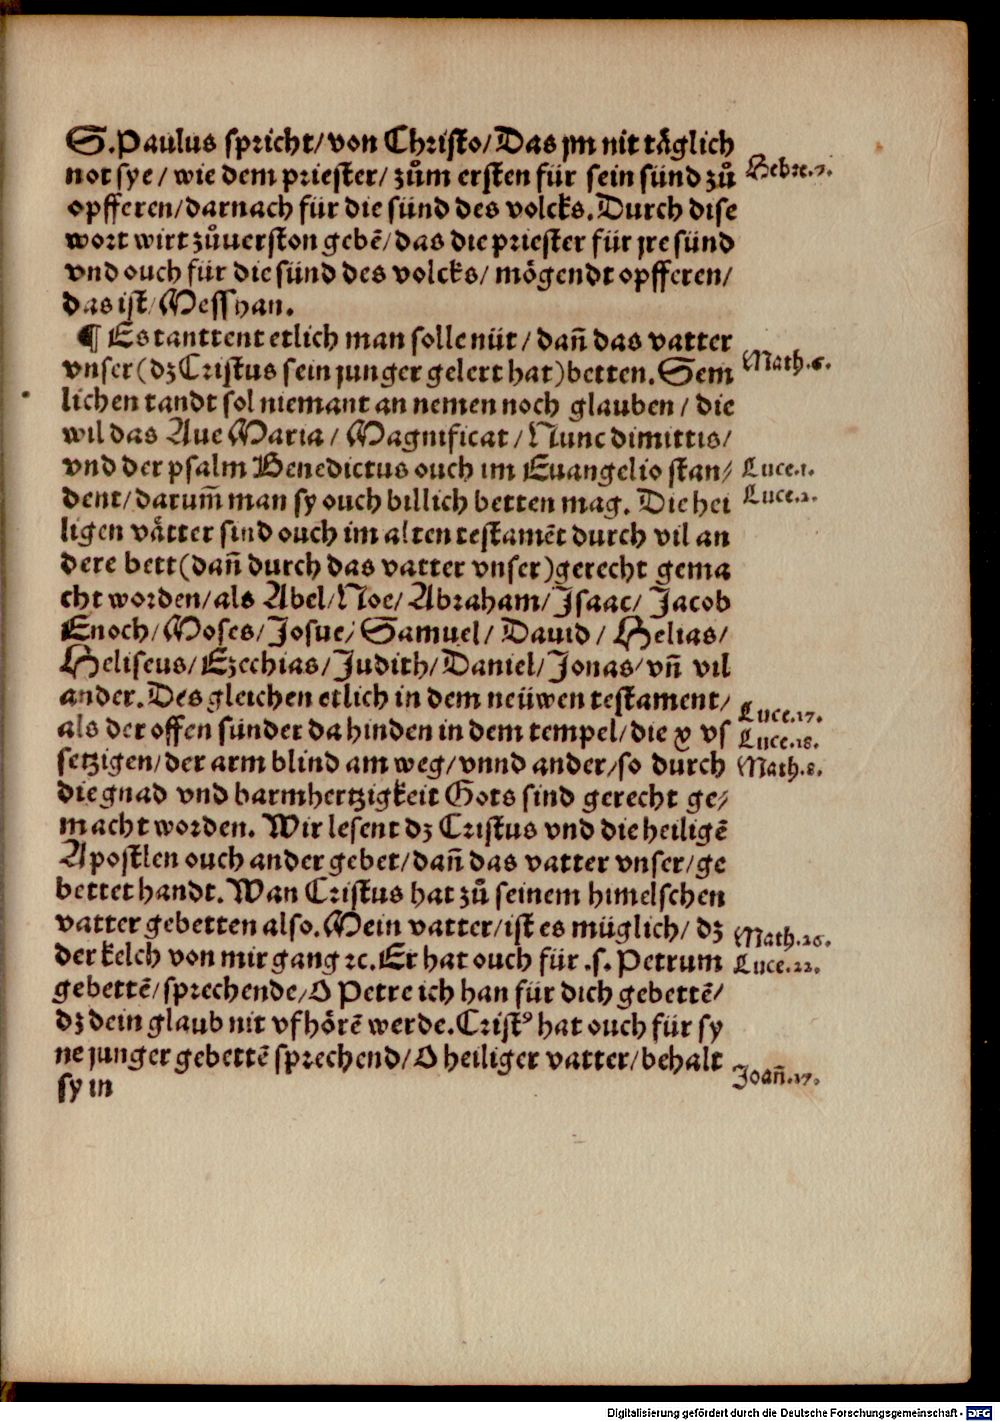 S.Paulus spricht/von Christo/Das jm nit täglich
not sye/ wie dem priester/ zuͦm ersten für sein sünd zuͦ
Hebre.7.
opfferen/darnach für die sünd des volcks. Durch dise
wort wirt zuͦuerston gebē/das die priester für jre sünd
vnd ouch für die sünd des volcks/ mögendt opfferen/
das ist/Messhan.
¶ Es tanttent etlich man solle nüt/ dañ das vatter
vnser(dz Cristus sein junger gelert hat)betten. Sem
Math.6.
lichen tandt sol niemant an nemen noch glauben/ die
wil das Aue Maria/ Magnificat/ Nunc dimittis/
vnd der psalm Benedictus ouch im Euangelio stan/
Luce.1.
dent/darum̄ man sy ouch billich betten mag. Die hei
Luce.2.
ligen vätter sind ouch im alten testamēt durch vil an
dere bett(dañ durch das vatter vnser)gerecht gema
cht worden/als Abel/Noe/Abraham/Isaac/ Jacob
Enoch/Moses/Josue/Samuel/ Dauid/ Helias/
Heliseus/Ezechias/Judith/Daniel/Jonas/vñ vil
ander. Des gleichen etlich in dem neüwen testament/
Luce.17.
als der offen sünder da hinden in dem tempel/die x vs
Luce.18.
setzigen/der arm blind am weg/vnnd ander/so durch
Math.8.
die gnad vnd barmhertzigkeit Gots sind gerecht ge/
macht worden. Wir lesent dz Cristus vnd die heiligē
Apostlen ouch ander gebet/dañ das vatter vnser/ge
bettet handt. Wan Cristus hat zuͦ seinem himelschen
vatter gebetten also. Mein vatter/ist es müglich/ dz
Math.26.
der kelch von mir gang ꝛc. Er hat ouch für .s. Petrum
Luce.22.
gebettē/sprechende/O Petre ich han für dich gebettē/
dz dein glaub nit vfhörē werde. Cristꝰ hat ouch für sy
ne junger gebettē sprechend/O heiliger vatter/behalt
Joañ.17.
sy in
Digitalisierung gefördert durch die Deutsche Forschungsgemeinschaft - DFG